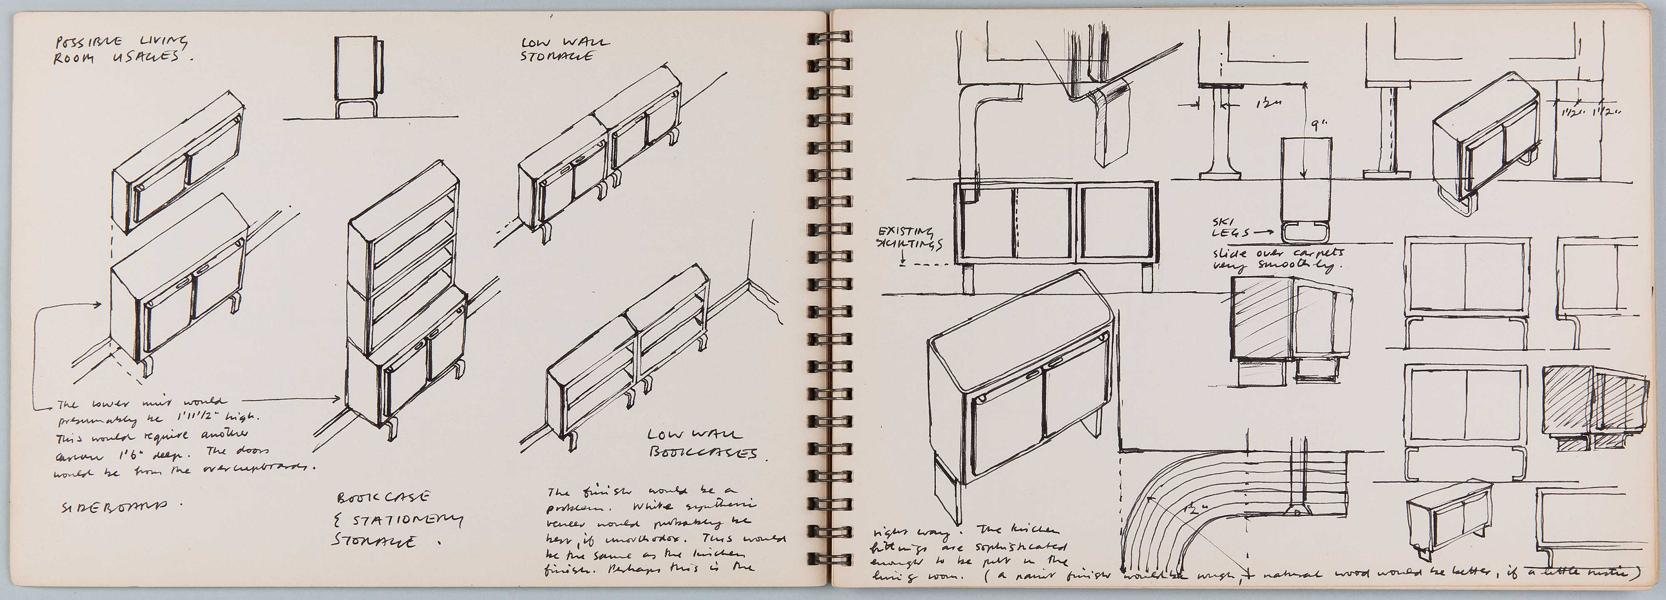 POSSIBLE LIVING
ROOM USAGES.
LOW WALL
STORAGE
The lower unit would
presumably be 1'11½" high.
This would require another
carcase 1'6" deep. The doors
would be from the overcupboards.
SIDEBOARD.
BOOKCASE
& STATIONERY
STORAGE.
LOW WALL
BOOKCASES.
The finish would be a
problem. White synthetic
veneer would probably be
best, if unorthodox. This would
be the same as the kitchen
finish. Perhaps this is the
1½"
9"
1½" 1½"
EXISTING
SKIRTINGS
SKI
LEGS
slide over carpets
very smoothly.
1½"
right way. The kitchen
fittings are sophisticated
enough to be put in the
living room. (a paint finish would be rough, natural wood would be better, if a little rustic)